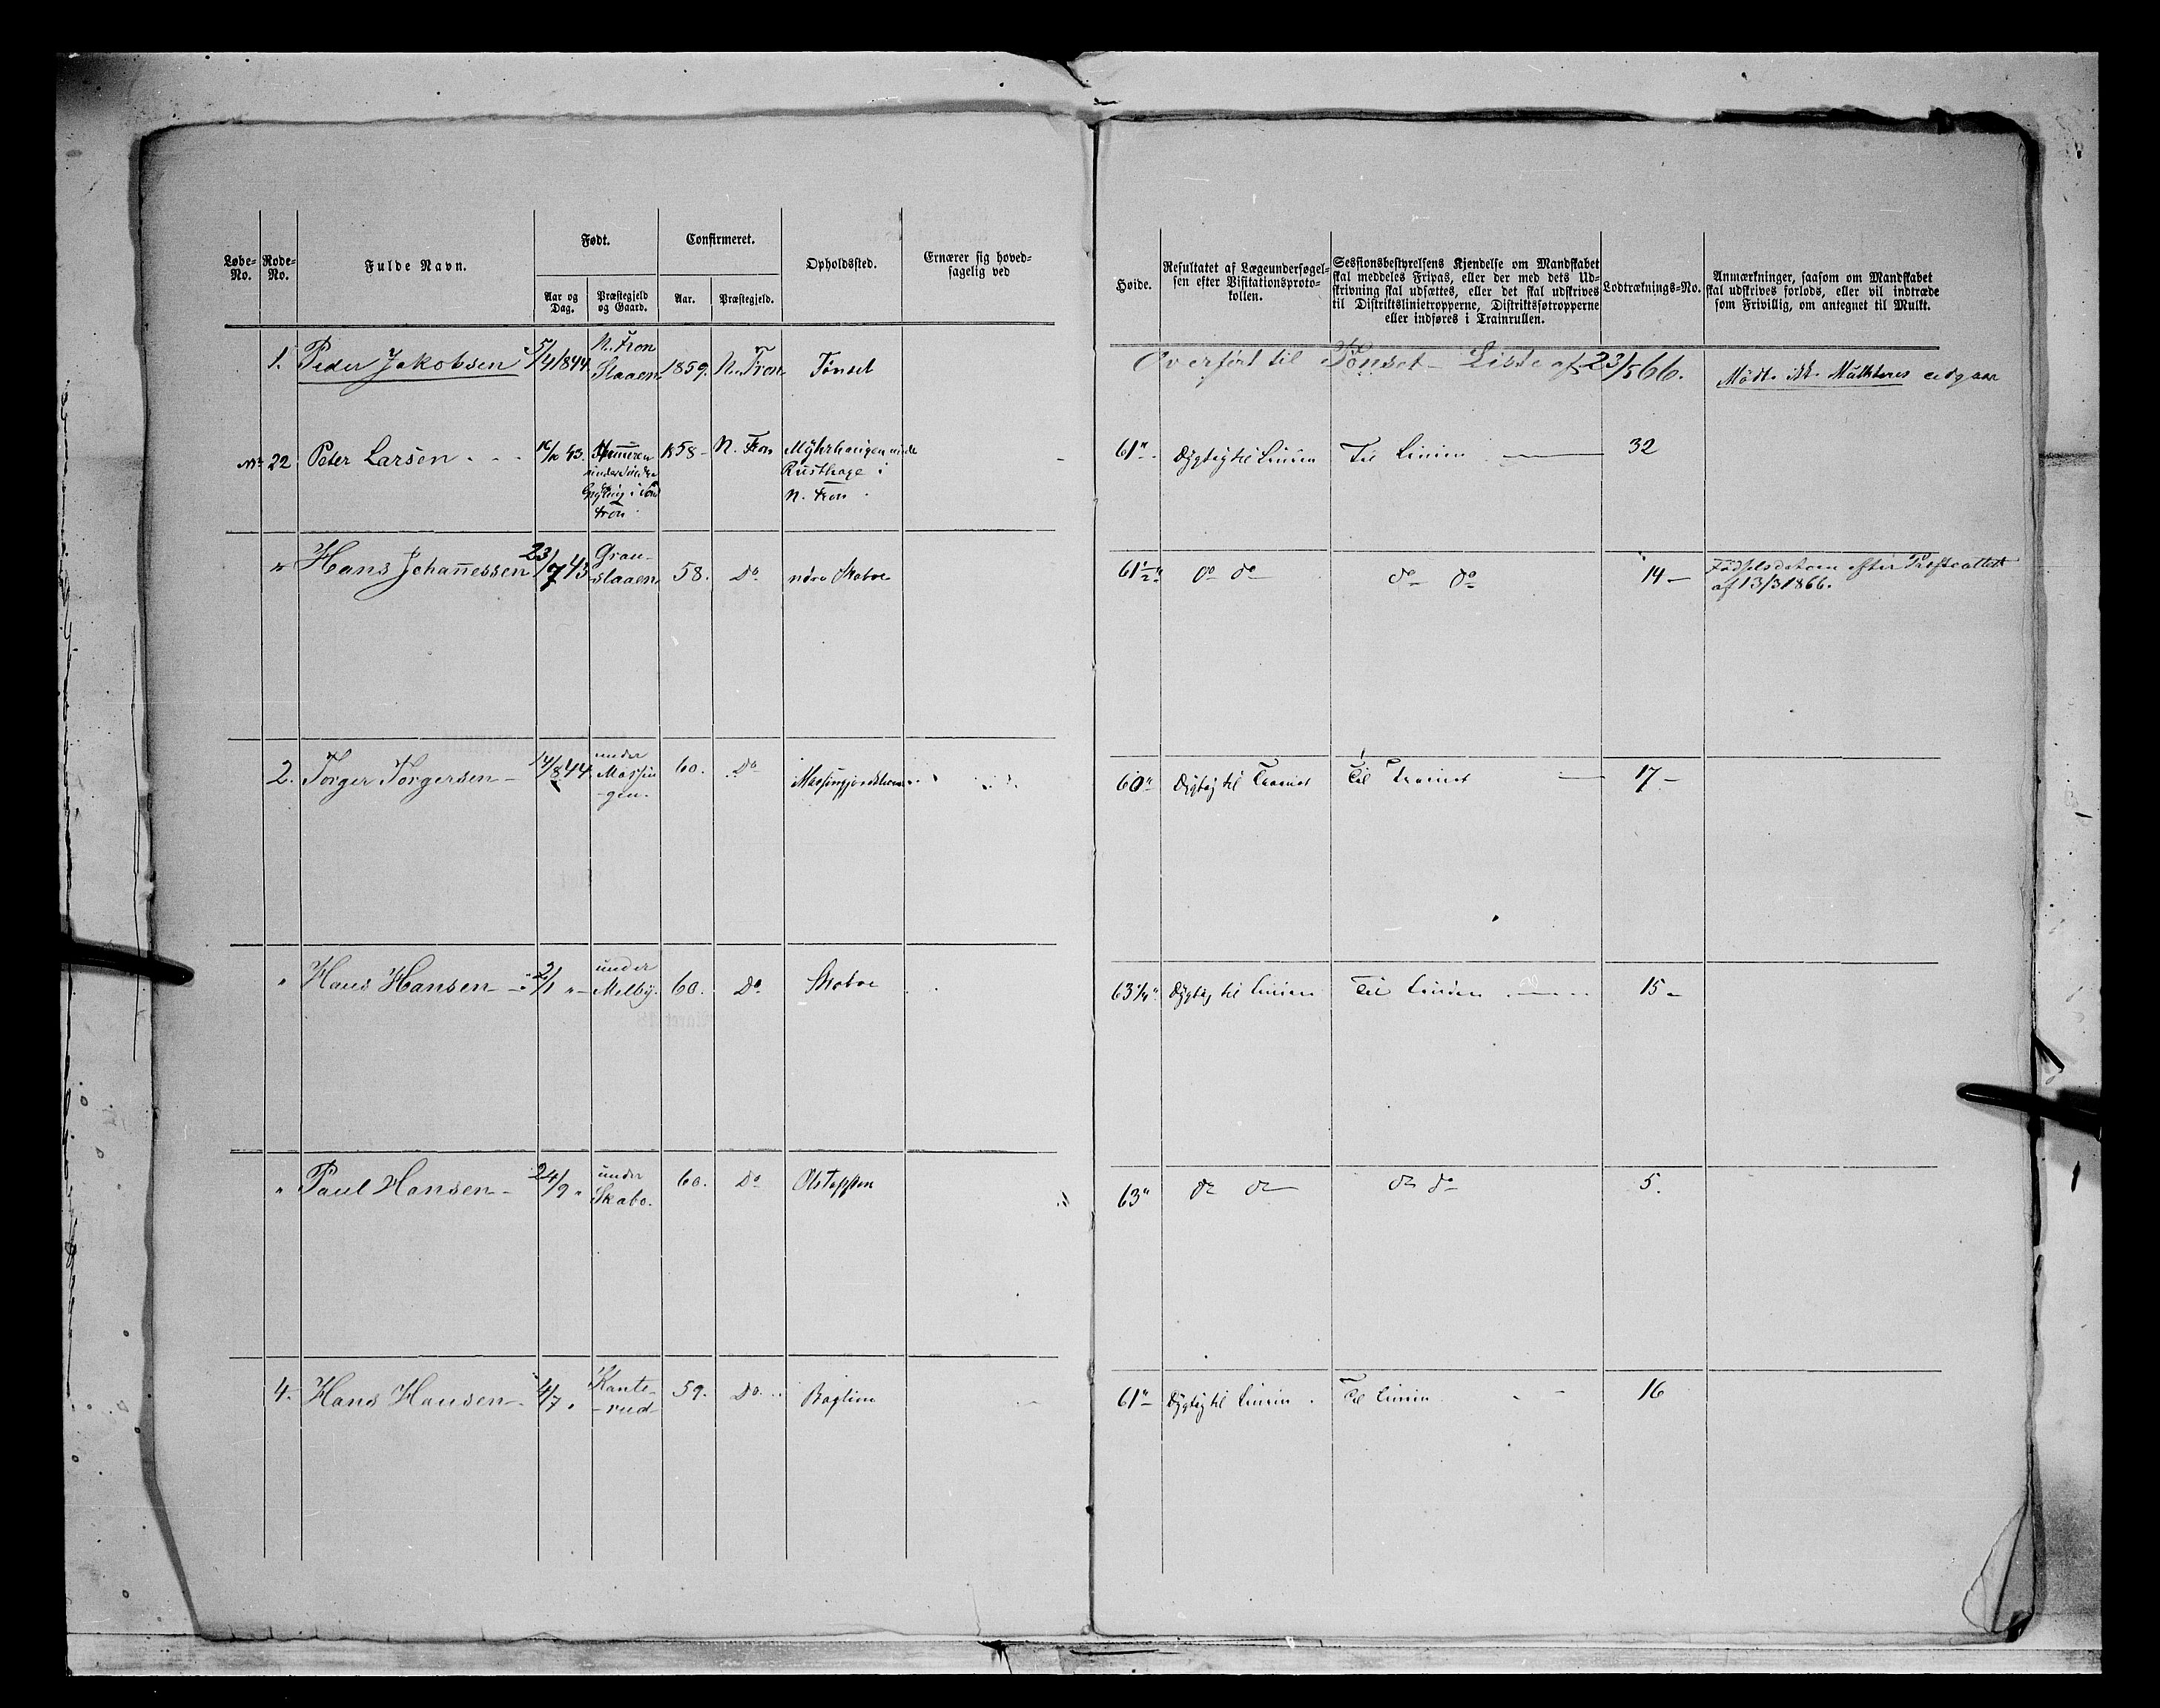 Løbe-No.
Rode-No.
Fulde Navn.
Født.
Aar og Dag.
Præstegjeld og Gaard.
Confirmeret.
Aar.
Præstegjeld.
Opholdssted.
Ernærer sig hoved-
sagelig ved
Høide.
Resultatet af Lægeundersøgel-
sen efter Visitationsproto-
kollen.
Sessionsbestyrelsens Kjendelse om Mandskabet
skal meddeles Fripas, eller der med dets Ud-
skrivning skal udsættes, eller det skal udskrives
til Distriktslinietropperne, Distriktsfotropperne
eller indføres i Trainrullen.
Lodtræknings-No.
Anmærkninger, saasom om Mandskabet
skal udskrives forlods, eller vil indtræde
som Frivillig, om antegnet til Mulkt.
1. Peder Jakobsen 5/4 1844 N. Fron Slaaen 1859. N. Fron Tønset
Overført til Tønset Liste af 23/5 66. Mødt. ikk. Mulkteres
22 Peter Larsen 16/10 43. under i Fron 1858 N. Fron Rusthage i N. Fron
61" Dygtig til Linien Til Linien 32
" Hans Johannessen 23/7 43 Grau-slaaen 58. Do Skaboe
61 1/2" do do do do 14 Fødselsdatoen efter
af 13/3 1866.
2. Torger Torgersen 14/8 44 under Massin-gen. 60. Do
60" Dygtig til Trainet Til Trainet 17
" Hans Hansen 2/1 " under Melby. 60. Do Skaboe
63 1/4" Dygtig til Linien Til Linien 15
" Paul Hansen 24/9 " under Skabo. 60. Do Olstappen
63" do do do do 5.
4. Hans Hansen 4/7 " Kante-rud 59. Do. Baglien
61" Dygtig til Linien Til Linien 16